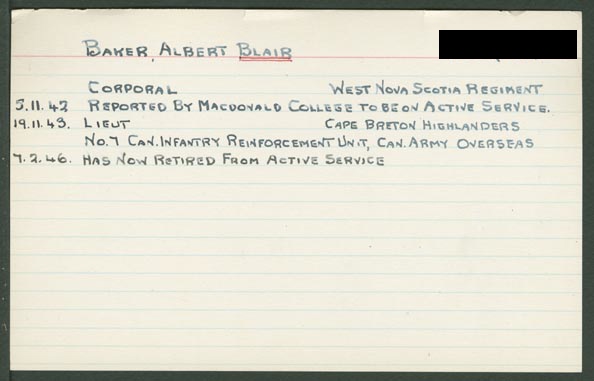 BAKER, ALBERT BLAIR
CORPORAL WEST NOVA SCOTIA REGIMENT
5.11.42 REPORTED BY MACDONALD COLLEGE TO BE ON ACTIVE SERVICE.
19.11.43. LIEUT CAPE BRETON HIGHLANDERS
No.7 CAN. INFANTRY REINFORCEMENT UNIT, CAN. ARMY OVERSEAS
7.2.46. HAS NOW RETIRED FROM ACTIVE SERVICE